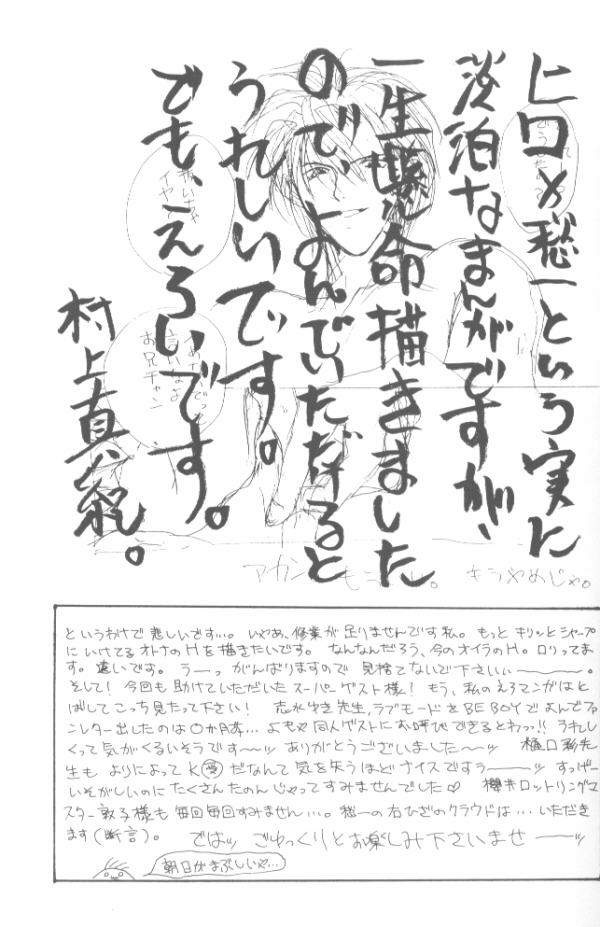 ヒロ×愁一という実に
淡泊なまんがですが、
一生懸命描きました
ので、よんでいただけると
うれしいです。
でも、えろいです。
村上真紀。
お兄チャン
というわけで悲しいです…。いやあ、修業が足りませんです私。もっとキリッとシャープ
にいけてるオトナのHを描きたいです。なんなんだろう、今のオイラのH。ロリってま
す。遠いです。うーっ がんばりますので 見捨てないで下さいぃーーー。
そして!今回も助けていただいたスーパーゲスト様!もう、私のえろマンガはと
ばしてこっち見たって下さい! 志水ゆき先生、ラブモードをBE BOYでよんでファ
ンレター出したのは○か月前…よもや同人ゲストにお呼びできるとわっっ!!うれし
くって気がくるいそうです〜〜ッ ありがとうございました〜ッ 樋口彩先
生も よりによってKだなんて気を失うほどナイスですぅーーーッ すっげー
いそがしいのに たくさんたのんじゃってすみませんでした♡ 櫻井ロットリングマ
スター敦子様も毎回毎回すみません…。愁一の右ひざのクラウドは…いただき
ます(断言)。 ではッ ごゆっくりとお楽しみ下さいませーーーッ
朝日がまぶしいや…